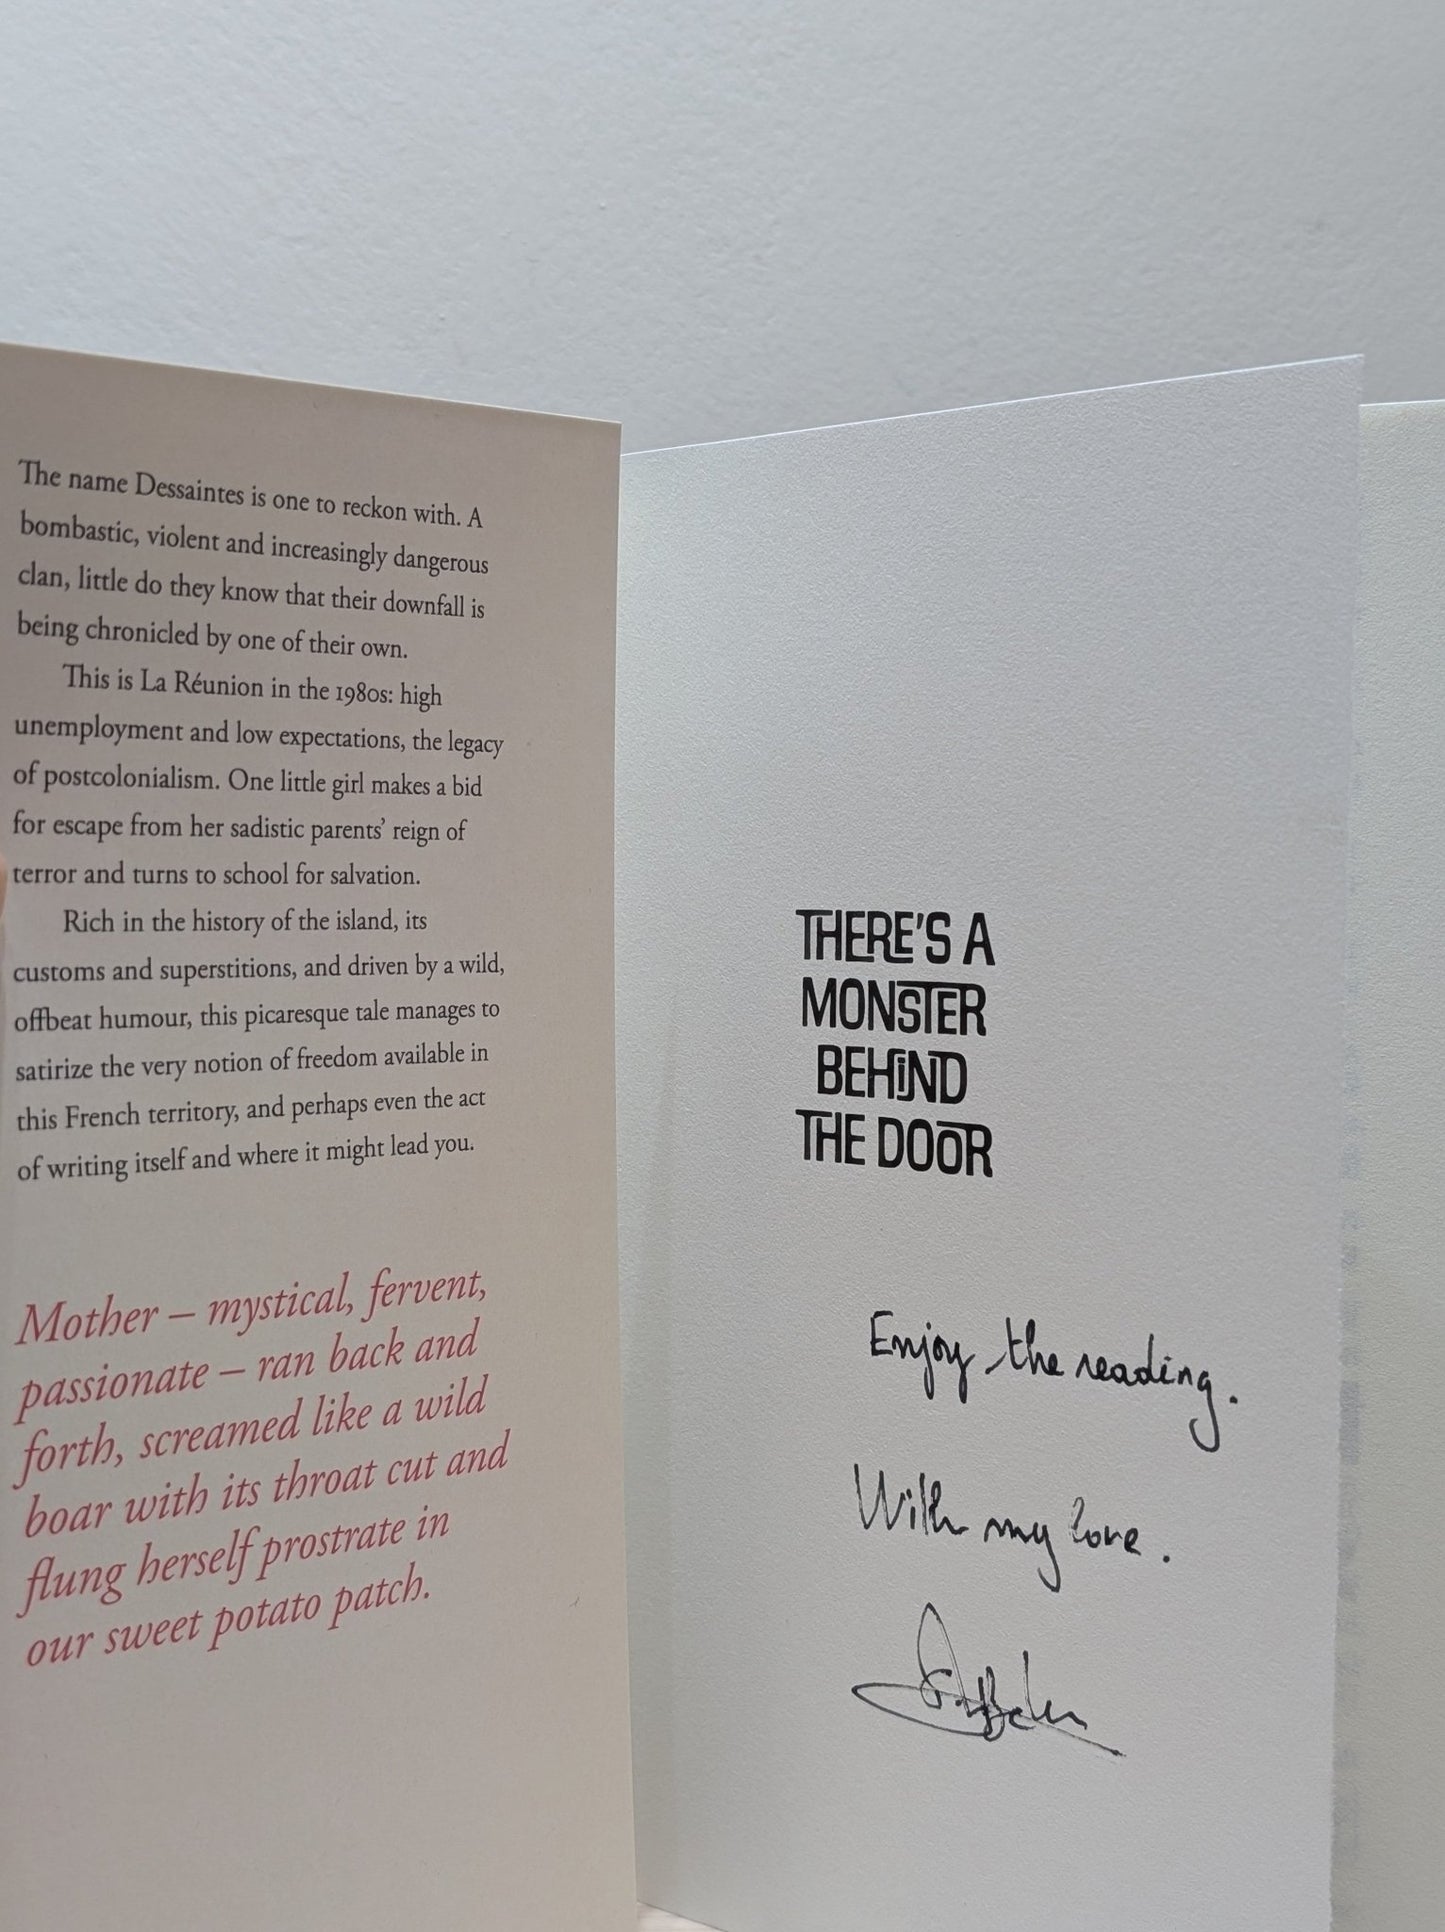 The name Dessaintes is one to reckon with. A
bombastic, violent and increasingly dangerous
clan, little do they know that their downfall is
being chronicled by one of their own.
This is La Réunion in the 1980s: high
unemployment and low expectations, the legacy
of postcolonialism. One little girl makes a bid
for escape from her sadistic parents’ reign of
terror and turns to school for salvation.
Rich in the history of the island, its
customs and superstitions, and driven by a wild,
offbeat humour, this picaresque tale manages to
satirize the very notion of freedom available in
this French territory, and perhaps even the act
of writing itself and where it might lead you.
Mother – mystical, fervent,
passionate – ran back and
forth, screamed like a wild
boar with its throat cut and
flung herself prostrate in
our sweet potato patch.
THERE'S A
MONSTER
BEHIND
THE DOOR
Enjoy the reading.
With my love.